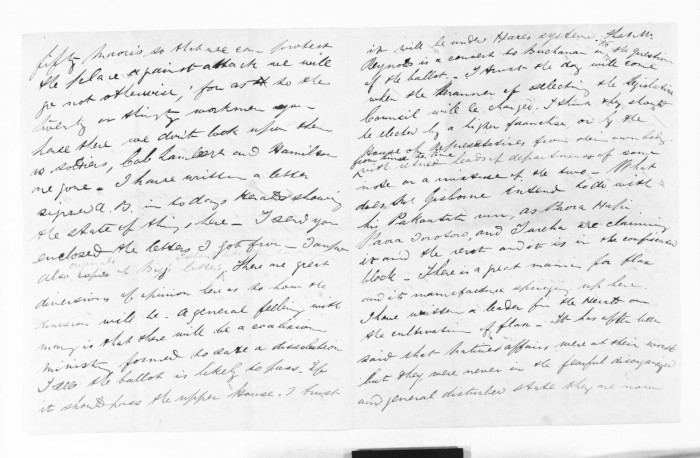 fifty Maoris, so that we can protect
the place against attack we will
go not otherwise; for as to the
twenty or thirty workmen you
have there we don't look upon them
as soldiers, Cob Lambert and Hamilton
are gone - I have written a letter
signed A. B. in to days Herald showing
the state of things here - I send you
enclosed the letters I got from
also copies of letters, There are great
diversions of opinion here as to how the
division will be - A general feeling with
many is that there will be a coalition
Ministry formed to save a dissolution
I see the ballot is likely to pass. If
it should pass the upper House. I trust
it will be under Hares system. That Mr
Reynolds is a convert to Buchanan in the question
of the ballot. - I trust the day will come
when the manner of selecting the Legislative
Council will be changed. I think they should
be elected by a higher franchise, or by the
House of Representatives from their own body
from time to time,
with retired heads of departments of some
note or a mixture of the two - What
does Mr Gisborne intend to do with
his run, as
and are claiming
it and the rest and it is in the confiscated
block - There is a great mania for flax
and its manufacture springing up here.
I have written a leader for the Herald on
the cultivation of flax - It has often been
said that Natives affairs were at their worst
but they were never in the fearful disorganized
and general disturbed state they are now